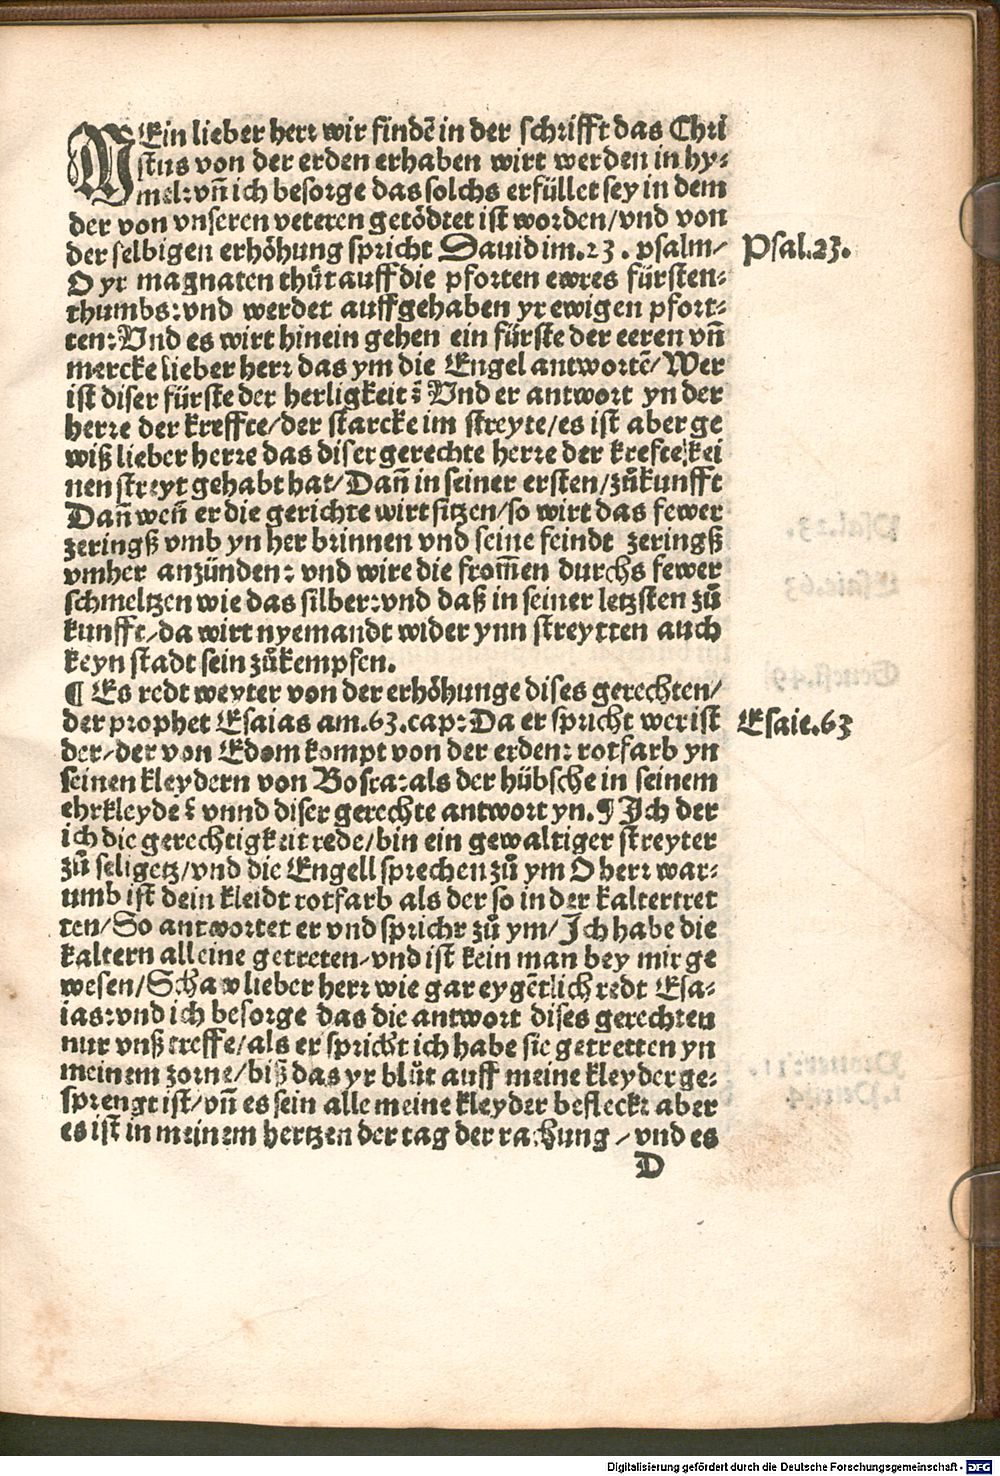 MEin lieber herr wir findē in der schrifft das Chri
stus von der erden erhaben wirt werden in hy⸗
mel: vn̄ ich besorge das solchs erfüllet sey in dem
der von vnseren veteren getödtet ist worden/vnd von
der selbigen erhöhung spricht Dauid im .23. psalm/
Psal.23.
O yr magnaten thůt auff die pforten ewres fürsten⸗
thumbs: vnd werdet auffgehaben yr ewigen pfort⸗
ten: Vnd es wirt hinein gehen ein fürste der eeren vn̄
mercke lieber herr das ym die Engel antwortē/ Wer
ist diser fürste der herligkeit? Vnd er antwort yn der
herre der kreffte/der starcke im streyte/es ist aber ge
wiß lieber herre das diser gerechte herre der krefte/kei
nen streyt gehabt hat/Dan̄ in seiner ersten/zůkunfft
Dan̄ wen̄ er die gerichte wirt sitzen/so wirt das fewer
zeringß vmb yn her brinnen vnd seine feindt zeringß
vmher anzünden: vnd wirt die from̄en durchs fewer
schmeltzen wie das silber: vnd daß in seiner letzsten zů
kunfft/da wirt nyemandt wider ynn streytten auch
keyn stadt sein zůkempfen.
¶ Es redt weyter von der erhöhunge dises gerechten/
der prophet Esaias am .63. cap: Da er spricht wer ist
Esaie.63
der/der von Edom kompt von der erden: rotfarb yn
seinen kleydern von Bosra: als der hübsche in seinem
ehrkleyde? vnnd diser gerechte antwort yn. ¶ Ich der
ich die gerechtigkeit rede/bin ein gewaltiger streyter
zů seligetz/vnd die Engell sprechen zů ym O herr war⸗
umb ist dein kleidt rotfarb als der so in der kaltertret
ten/So antwortet er vnd sprichr zů ym/Ich habe die
kaltern alleine getreten/vnd ist kein man bey mir ge
wesen/Schaw lieber herr wie gar eygētlich redt Esa⸗
ias: vnd ich besorge das die antwort dises gerechten
nur vnß treffe/als er spricht ich habe sie getretten yn
meinem zorne/biß das yr blůt auff meine kleyder ge⸗
sprengt ist/vn̄ es sein alle meine kleyder befleckt aber
es ist in meinem hertzen der tag der rachung/vnd es
D
Digitalisierung gefördert durch die Deutsche Forschungsgemeinschaft - DFG